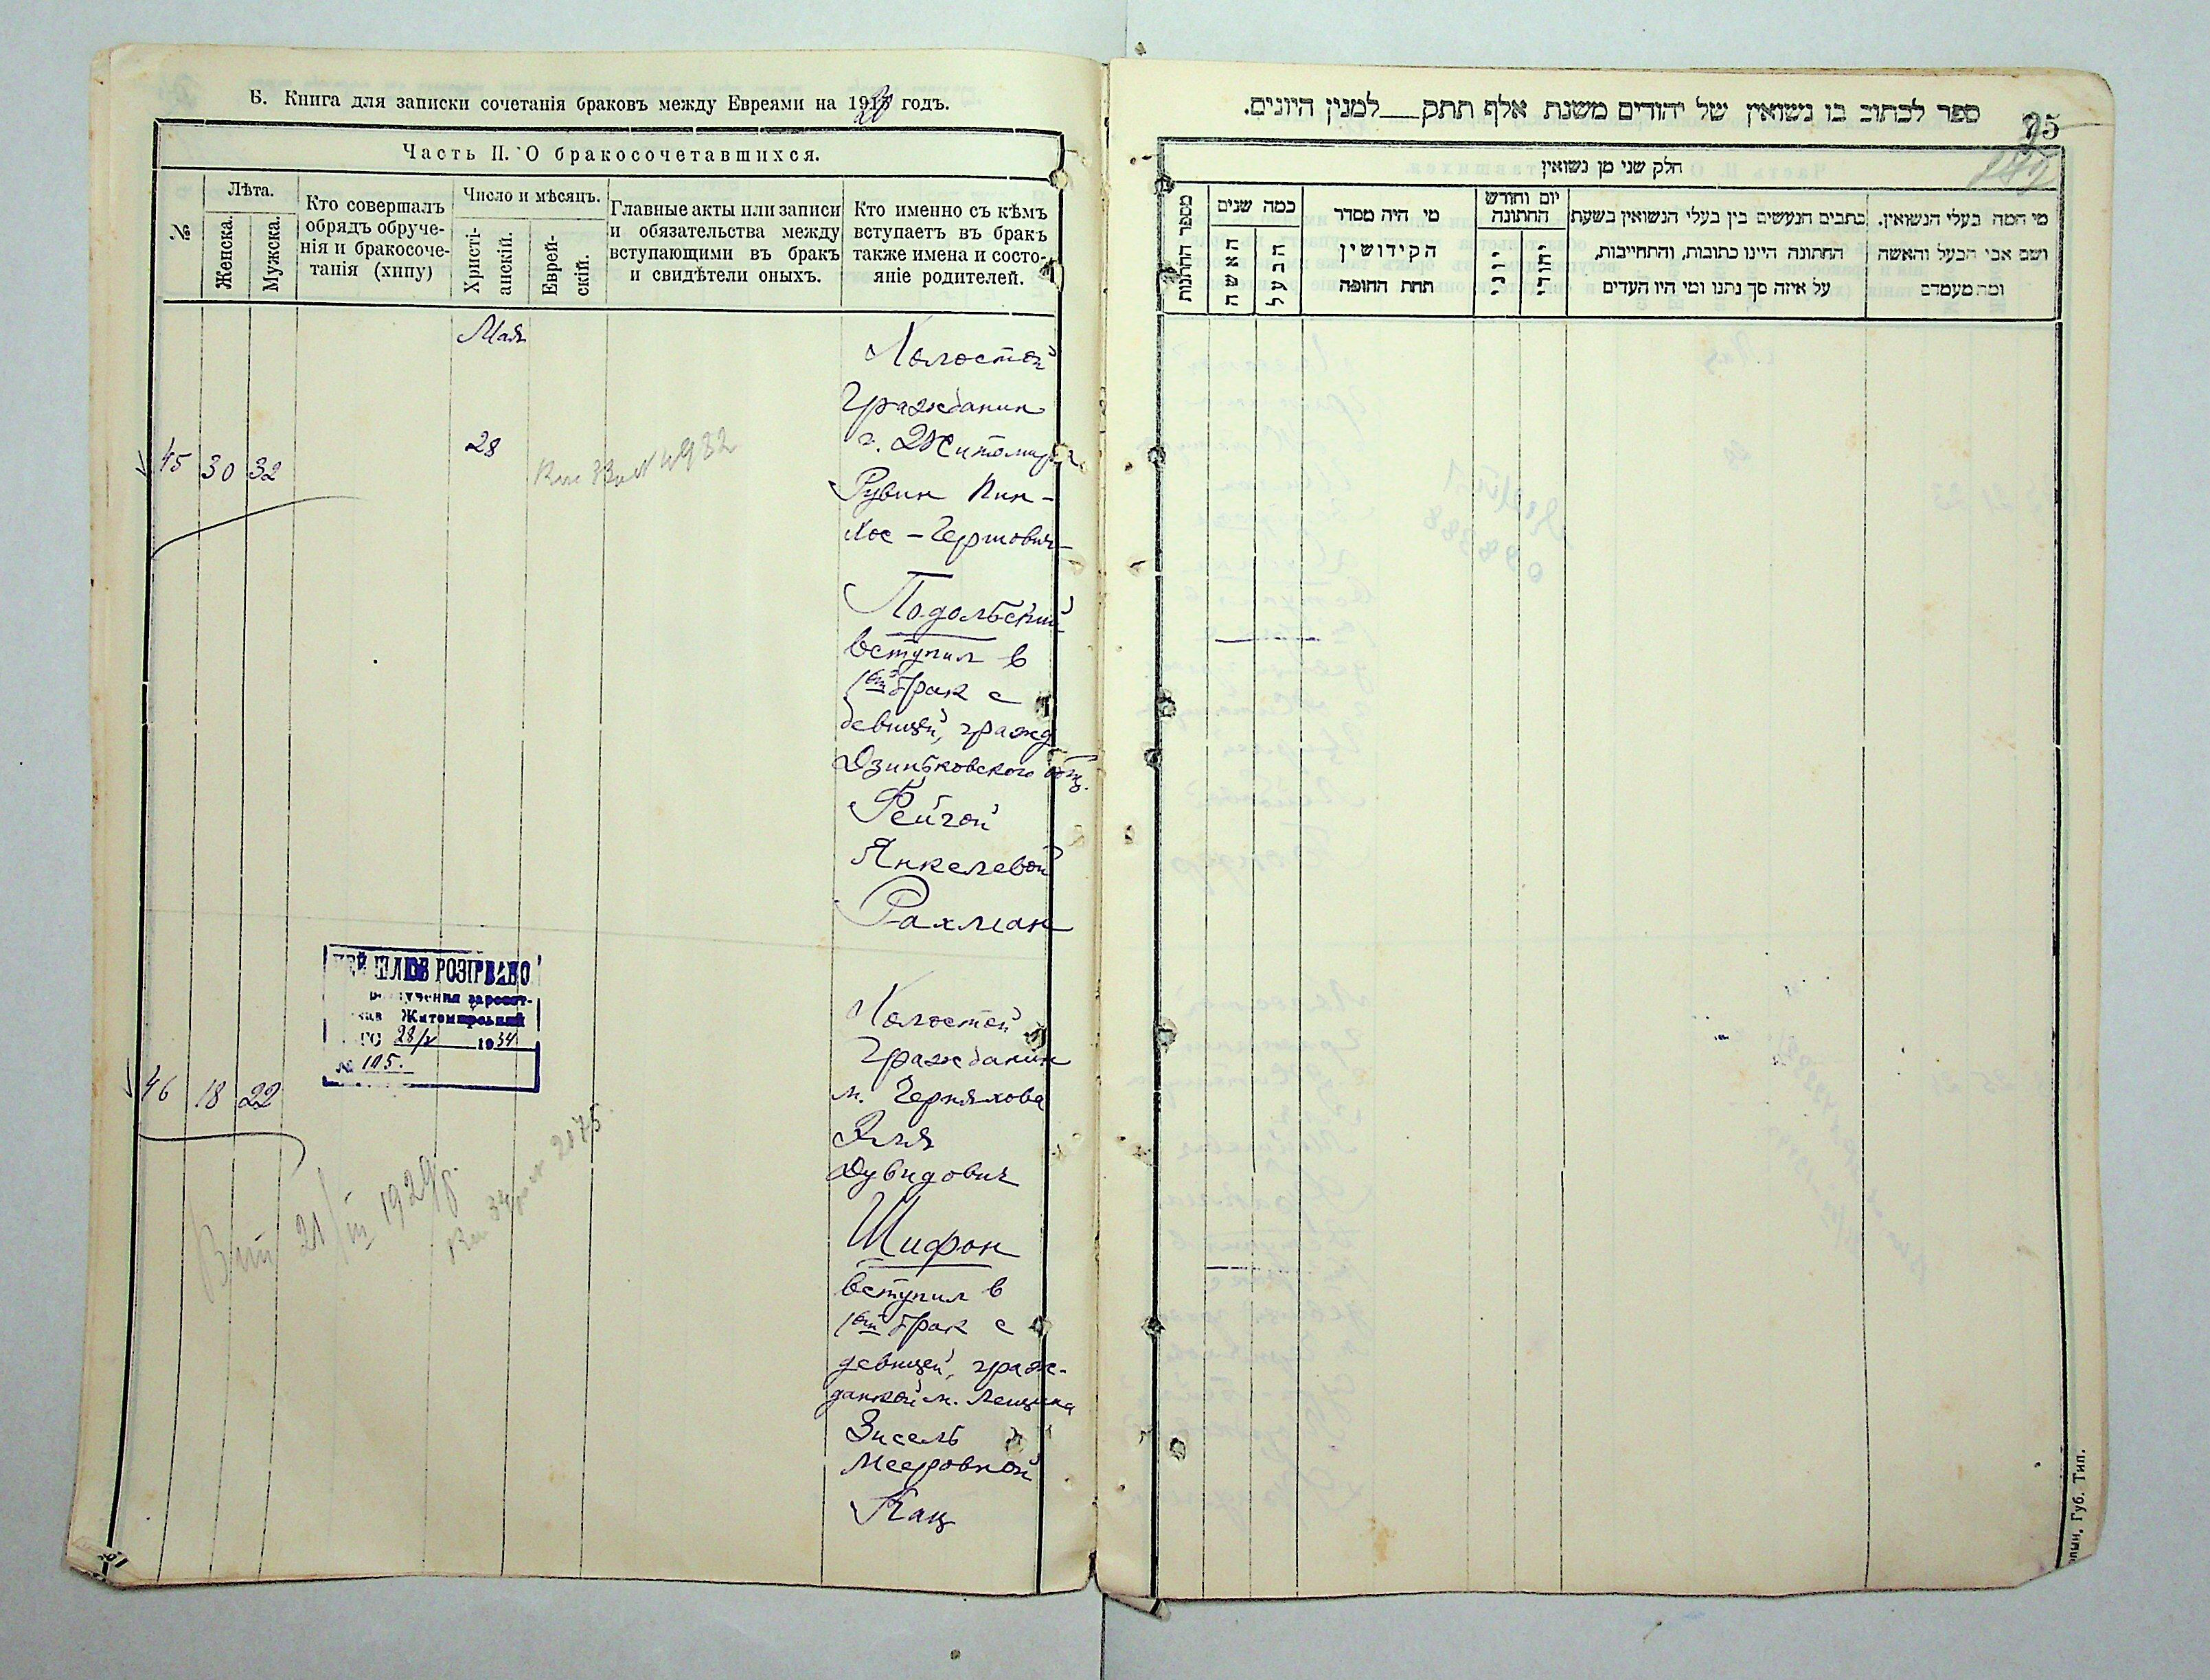 Б. Книга для записки сочетанія браковъ между Евреями на 1920 годъ.
Часть II. О бракосочетавшихся.
№
Лѣта.
Женска.
Мужска.
Кто совершалъ
обрядъ обруче-
нія и бракосоче-
танія (хипу)
Число и мѣсяцъ.
Христі-
анскій.
Еврей-
скій.
Главные акты или записи
и обязательства между
вступающими въ бракъ
и свидѣтели оныхъ.
Кто именно съ кѣмъ
вступаетъ въ бракъ
также имена и состо-
яніе родителей.
Мая
45 30 32
28
932
Холостой
Гражданин
г. Житомира
Рувин Пин-
хос-Гершович
Подольский
вступил в
1ый брак с
девицей, гражд
Дзиньковского общ.
Рейзой
Янкелевой
Рахман
ЦЕЙ ШЛЮБ РОЗІРВАНО
Житомирський
28/X 1934
№ 105.
46 18 22
21/III 1929р.
2075
Холостой
Гражданин
м. Черняхова
Эля
Дувидович
Шифон
вступил в
1ый брак с
девицей, граж-
данкой м. Лещина
Зисель
Мееровной
Кац
ספר לכתוב בו נשואין של יהודים משנת אלף תתק___למנין היונים.
25
חלק שני מן נשואין
מספר החתונות
כמה שנים
האשה
הבעל
מי היה מסדר
הקידושין
תחת החופה
יום וחודש
החתונה
יוני
יהודי
כתבים הנעשים בין בעלי הנשואין בשעת
החתונה היינו כתובות, והתחייבות,
על איזה סך נתנו ומי היו העדים
מי המה בעלי הנשואין.
ושם אבי הבעל והאשה
ומה מעמדם
Губ. Тип.